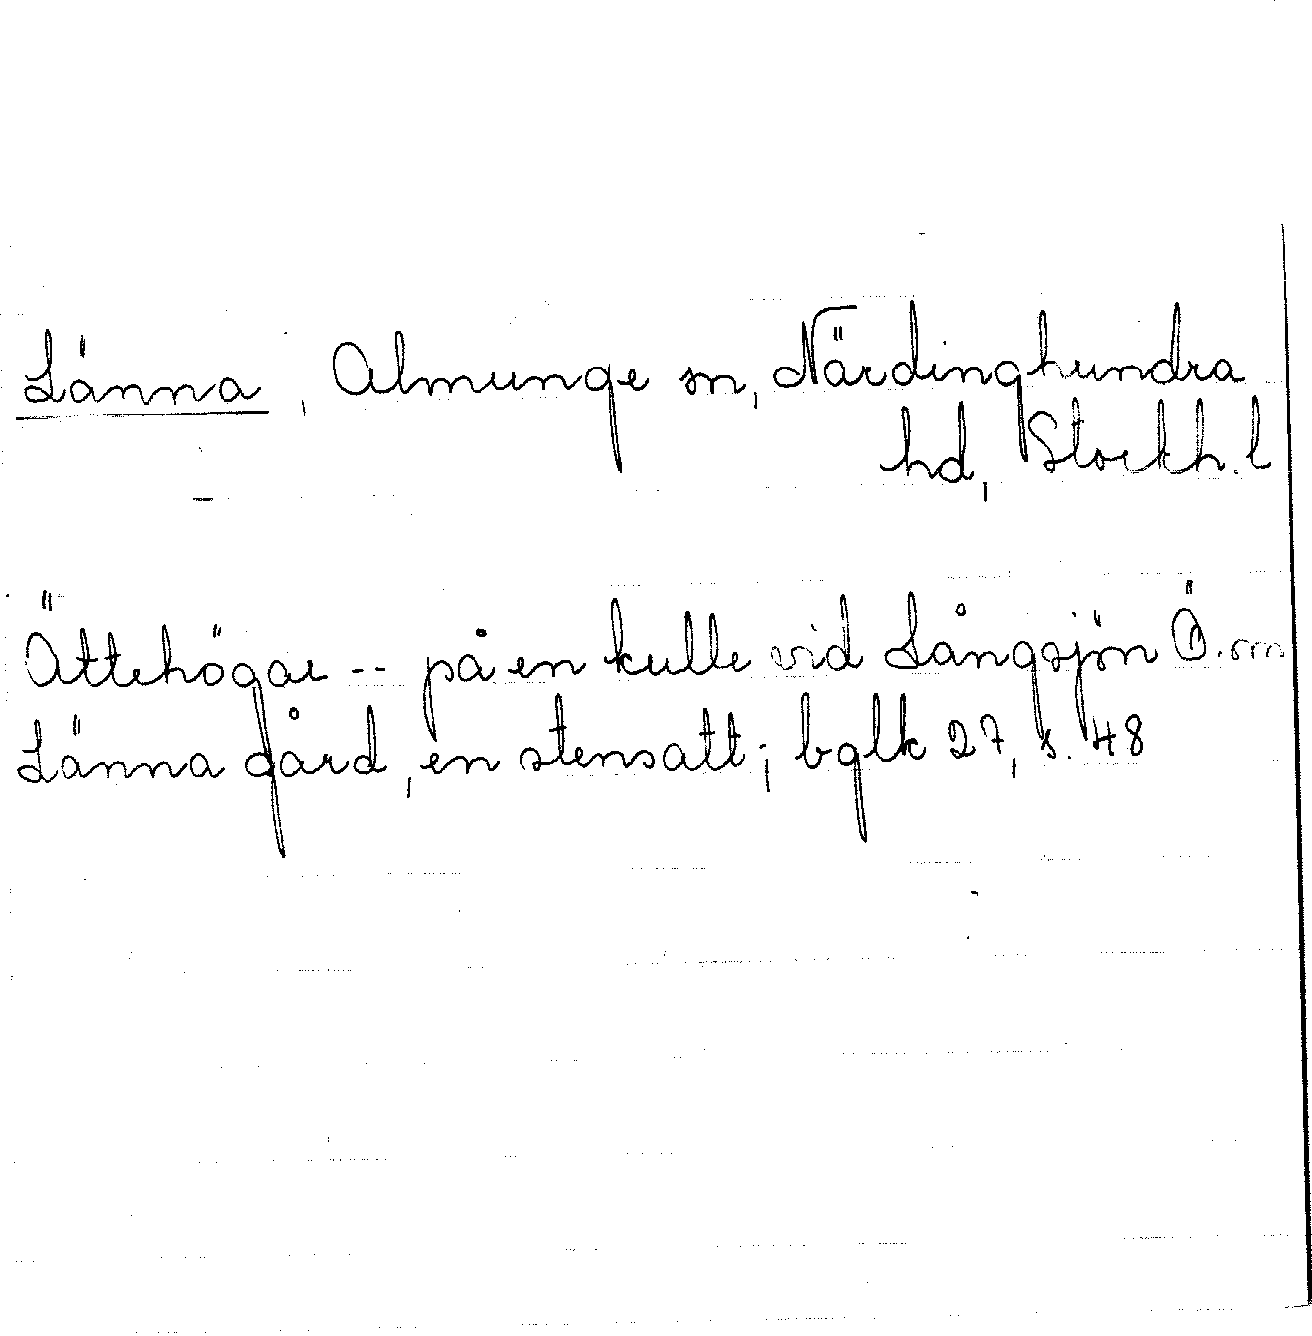 Länna, Almunge sn, Närdinghundra
hd, Stockh. l
Ättehögar -- på en kulle vid Långsjön Ö. om
Länna gård, en stensatt; bglk 27, s. 48